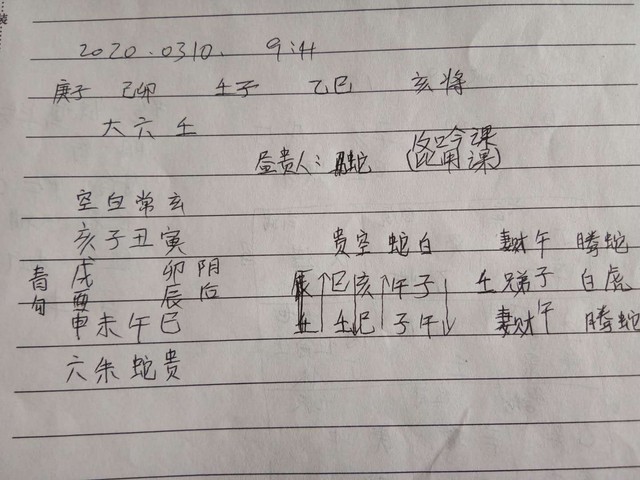 2020.0310. 9:11
庚子 己卯 壬子 乙巳 亥将
大六壬
昼贵人: 蛇 (返吟课)
空白常玄
亥子丑寅 贵空蛇白 妻财午 腾蛇
青 戌 卯 阴 巳亥午子 壬兄弟子 白虎
勾 酉 辰 后
申未午巳 壬巳子午 妻财午 腾蛇
六朱蛇贵